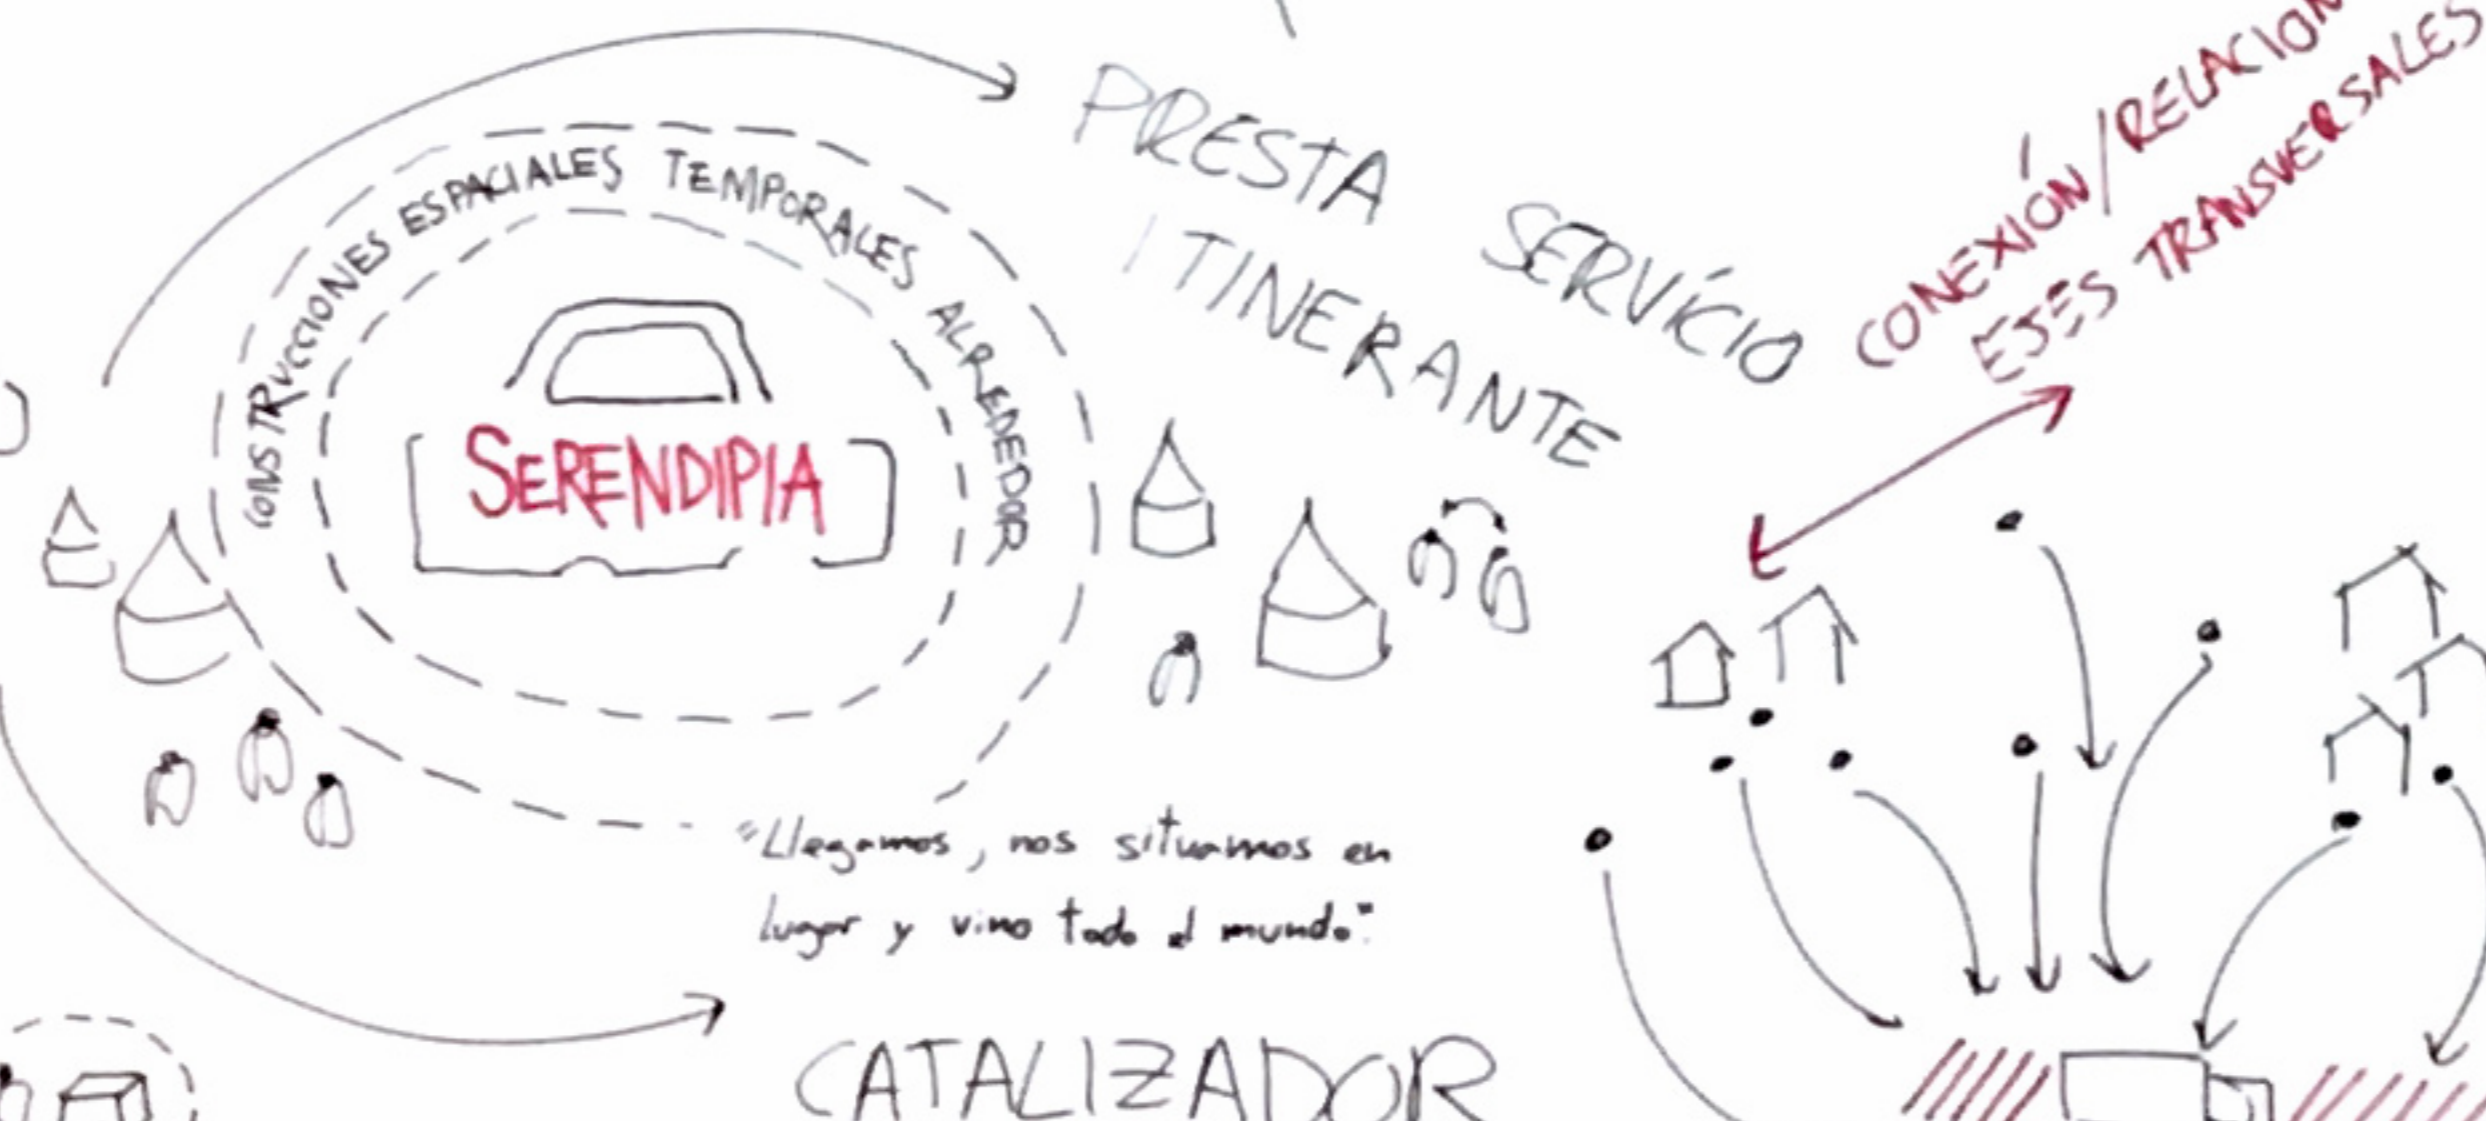 CONSTRUCCIONES ESPACIALES TEMPORALES ALREDEDOR
SERENDIPIA
PRESTA SERVÍCIO
ITINERANTE
CONEXIÓN/RELACION
EJES TRANSVERSALES
"Llegamos, nos situamos en
lugar y vino todo el mundo."
CATALIZADOR